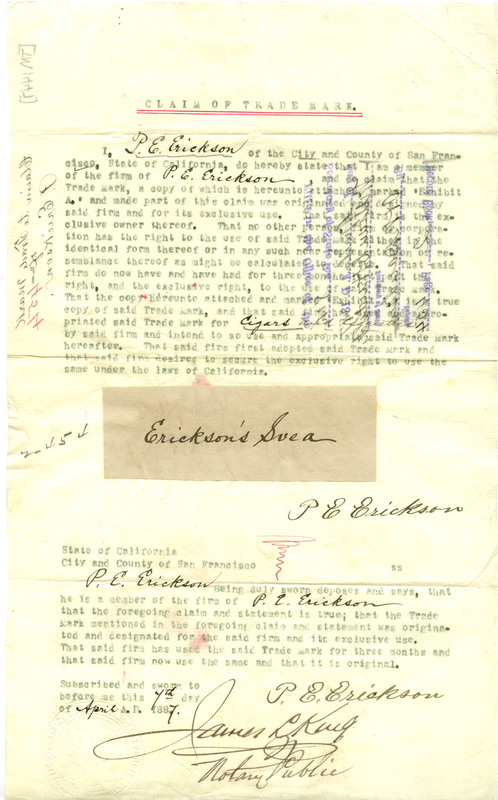 CLAIM OF TRADE MARK.
I, P. E. Erickson of the City and County of San Fran-
cisco, State of California, do hereby state that I am a member
of the firm of P. E. Erickson and claim that the
Trade Mark, a copy of which is hereunto "Exhibit
A." and made part of this claim was originated by
said firm and for its exclusive use. That said firm is the ex-
clusive owner thereof. That no other corpora-
tion has the right to the use of said Trade Mark either in the
identical form thereof or in any such near or re-
semblance thereof as might be calculated to That said
firm do now have and have had for three the
right, and the exclusive right, to the use Trade Mark.
That the copy hereunto attached and marked Exhibit A. is a true
copy of said Trade Mark, and that said
priated said Trade Mark for Cigars
by said firm and intend to so use and appropriate said Trade Mark
hereafter. That said firm first adopted said Trade Mark and
that said firm desires to secure the exclusive right to use the
same under the laws of California.
Erickson's Svea
P E Erickson
State of California
City and County of San Francisco ss
P. E. Erickson Being duly sworn deposes and says, that
he is a member of the firm of P. E. Erickson
that the foregoing claim and statement is true; that the Trade
Mark mentioned in the foregoing claim and statement was origina-
ted and designated for the said firm and its exclusive use.
That said firm has used the said Trade Mark for three months and
that said firm now use the same and that it is original.
Subscribed and sworn to
before me this 7th day
of April A.D. 1887.
P. E. Erickson
James L King
Notary Public